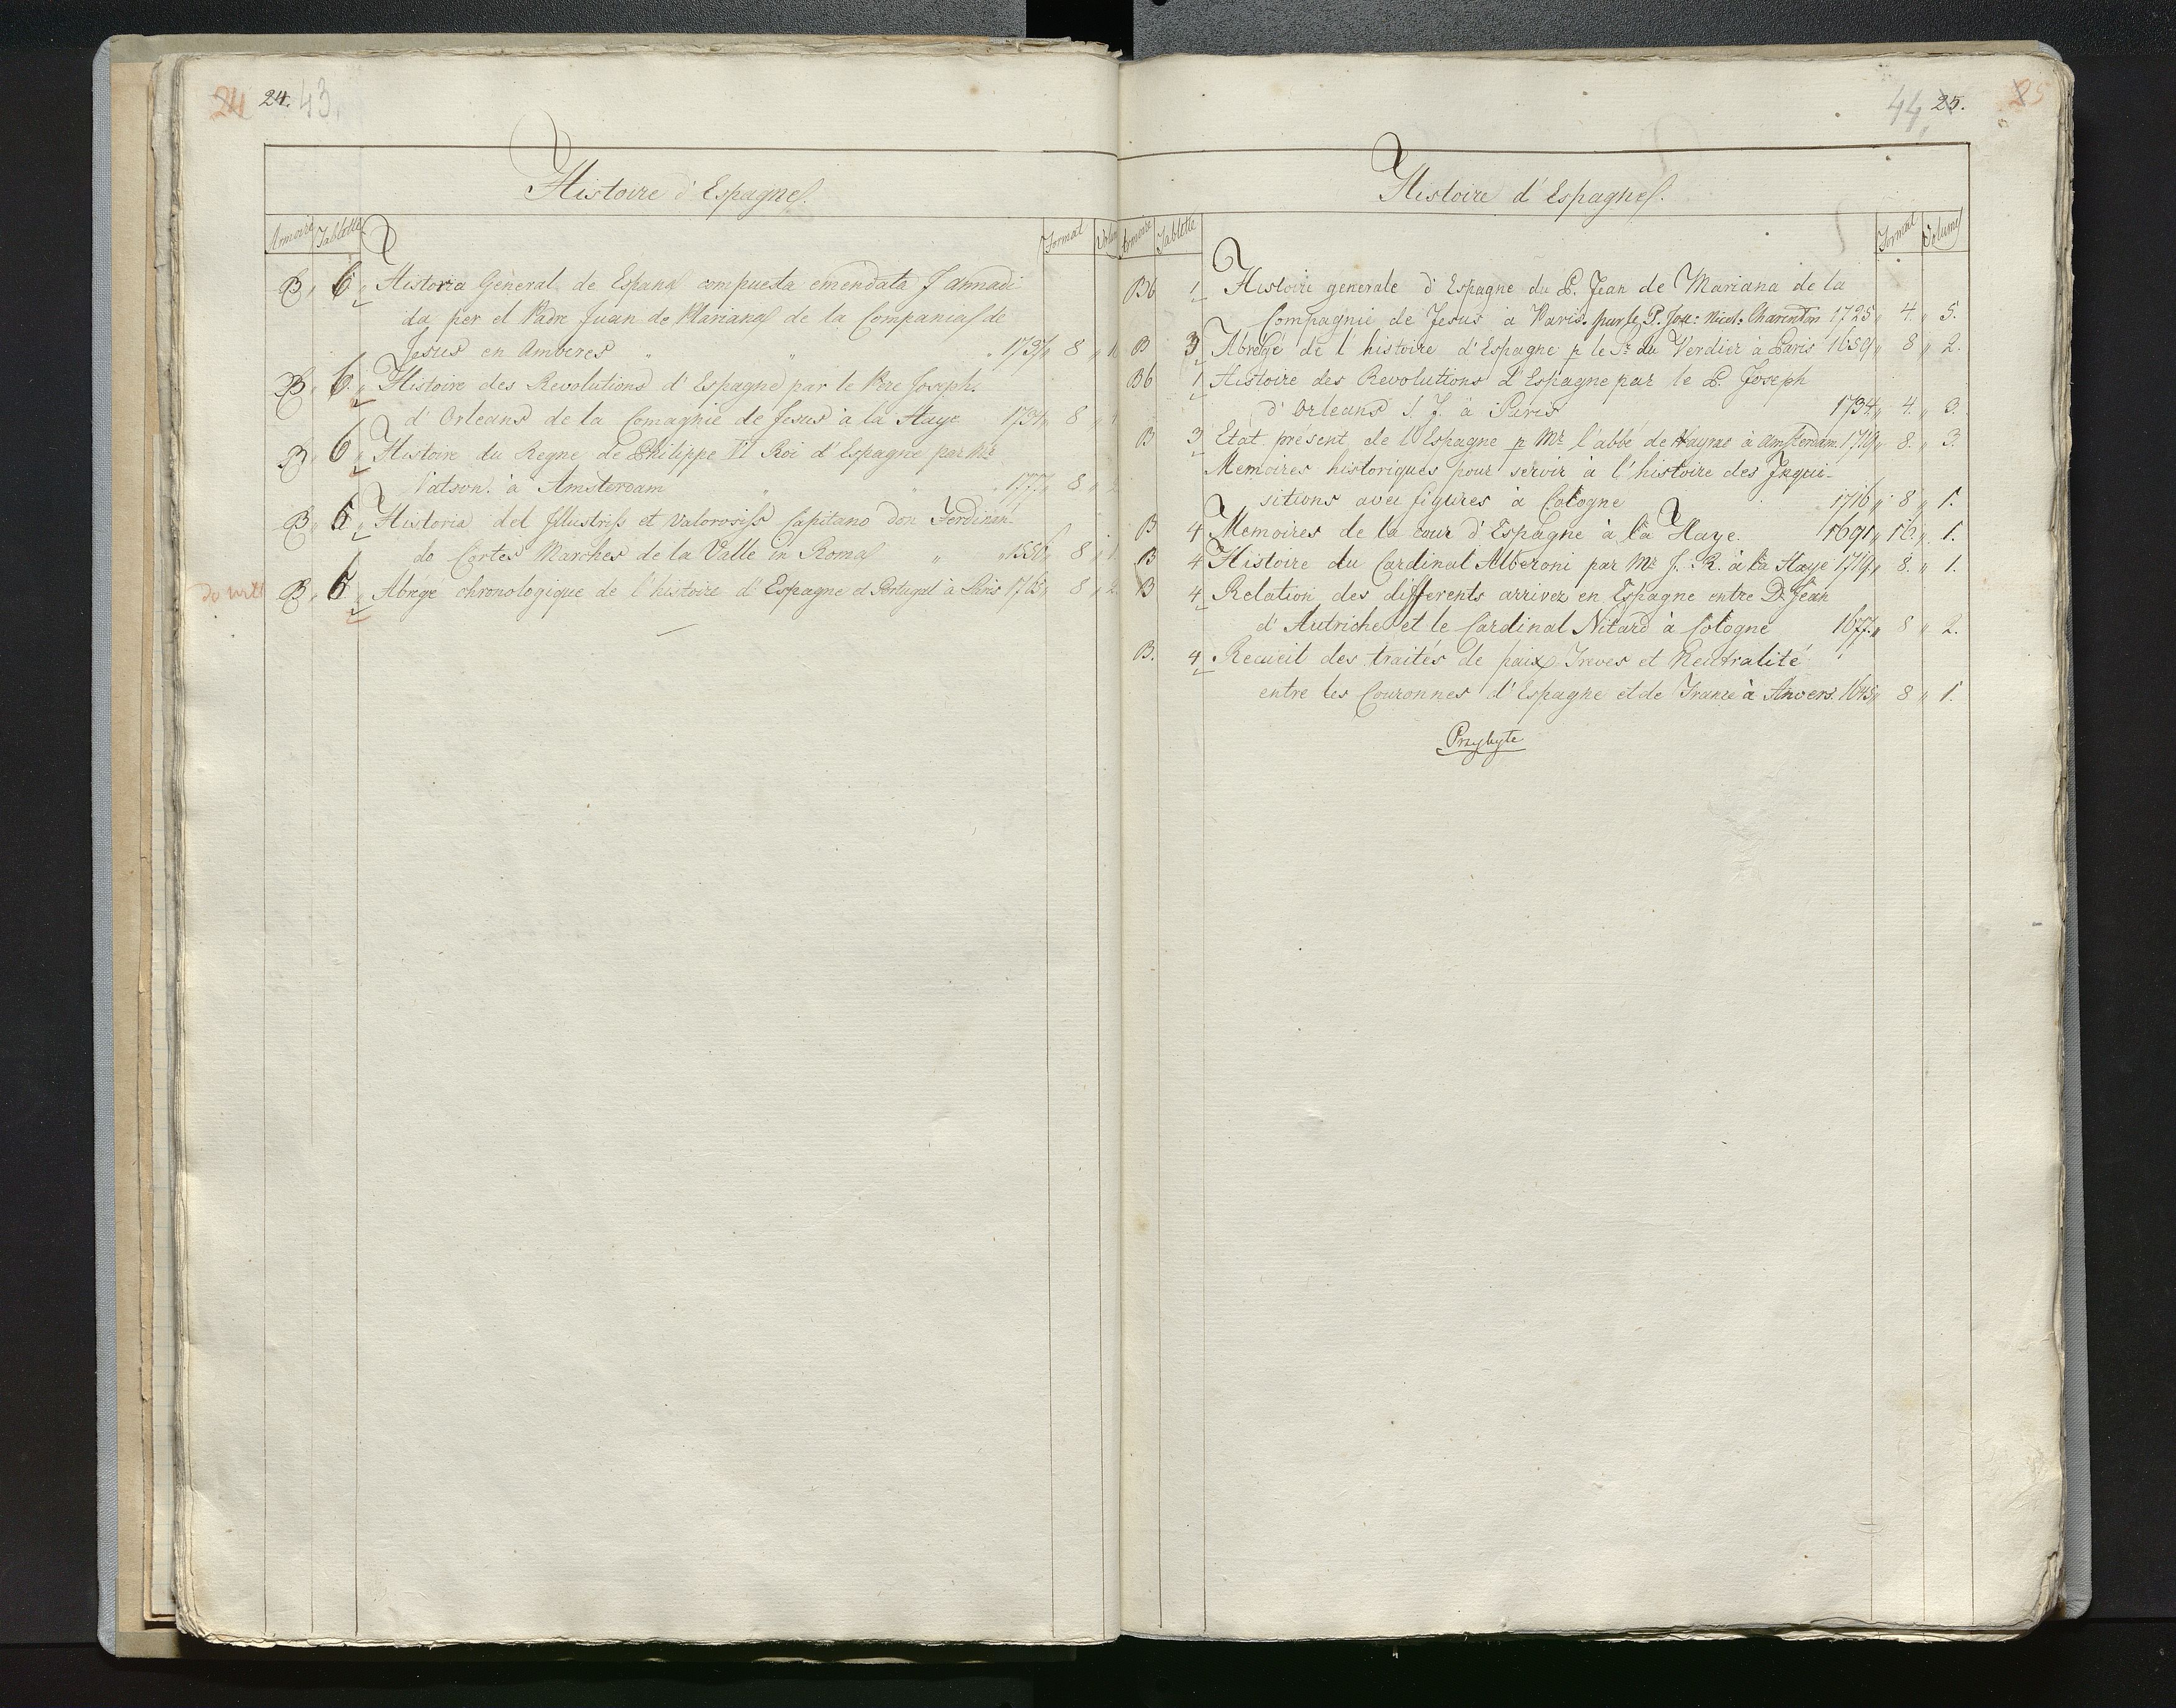 24 24. 43.
Histoire d'Espagne.
Armoire Tablette Format Volum
B, 6 „ Historia General de Espana compuesta emendata J annadi
da per el Padre Juan de Mariana de la Compania de
Jesus en Amberes „ „ „ 1737 „ 8 „
B, 6. „ Histoire des Revolutions d'Espagne par le Pere Joseph
d'Orleans de la Comagnie de Jesus à la Haye 1734 „ 8 „
B, 6 „ Histoire du Regne de Philippe II Roi d'Espagne par Mr
Vatson. à Amsterdam „ „ „ 177 „ 8 „ 2
B „ 6 „ Historia del Illustriss et Valorosiss Capitano don Ferdinan
do Cortes Marches de la Valle in Roma „ „ 1556 „ 8 „ 1
B, 6 „ Abrégé chronologique de l'histoire d'Espagne et Portugal à Paris 1765 „ 8 „ 2.
44 25. 25
Histoire d'Espagne.
Armoire Tablette Format Volume
Bb 1 Histoire generale d'Espagne du P. Jean de Mariana de la
Compagnie de Jesus à Paris. par le P. Jos: Nicol: Charenton 1725 „ 4. „ 5.
B 3 Abregé de l'histoire d'Espagne p le Sr du Verdier à Paris 1659 „ 8 „ 2.
Bb 1 Histoire des Revolutions d'Espagne par le P. Joseph
d'Orleans S. J. à Paris 1734 „ 4. „ 3.
B 3 Etat présent de l'Espagne p Mr l'abbé de Vayrac à Amsterdam 1719 „ 8. „ 3.
Memoires historiques pour servir à l'histoire des Inqui-
sitions avec figures à Cologne 1716 „ 8 „ 1.
B 4 Memoires de la cour d'Espagne à la Haye. 1691 „ 16. „ 1.
B 4 Histoire du Cardinal Alberoni par Mr J. R. à la Haye 1719 „ 8. „ 1.
B 4 Relation des differents arrivez en Espagne entre D. Jean
d'Autriche et le Cardinal Nitard à Cologne 1677. „ 8 „ 2.
B. 4 Recueil des traités de paix Treves et Neutralité
entre les Couronnes d'Espagne et de France à Anvers. 1645 „ 8 „ 1.
Przybyte